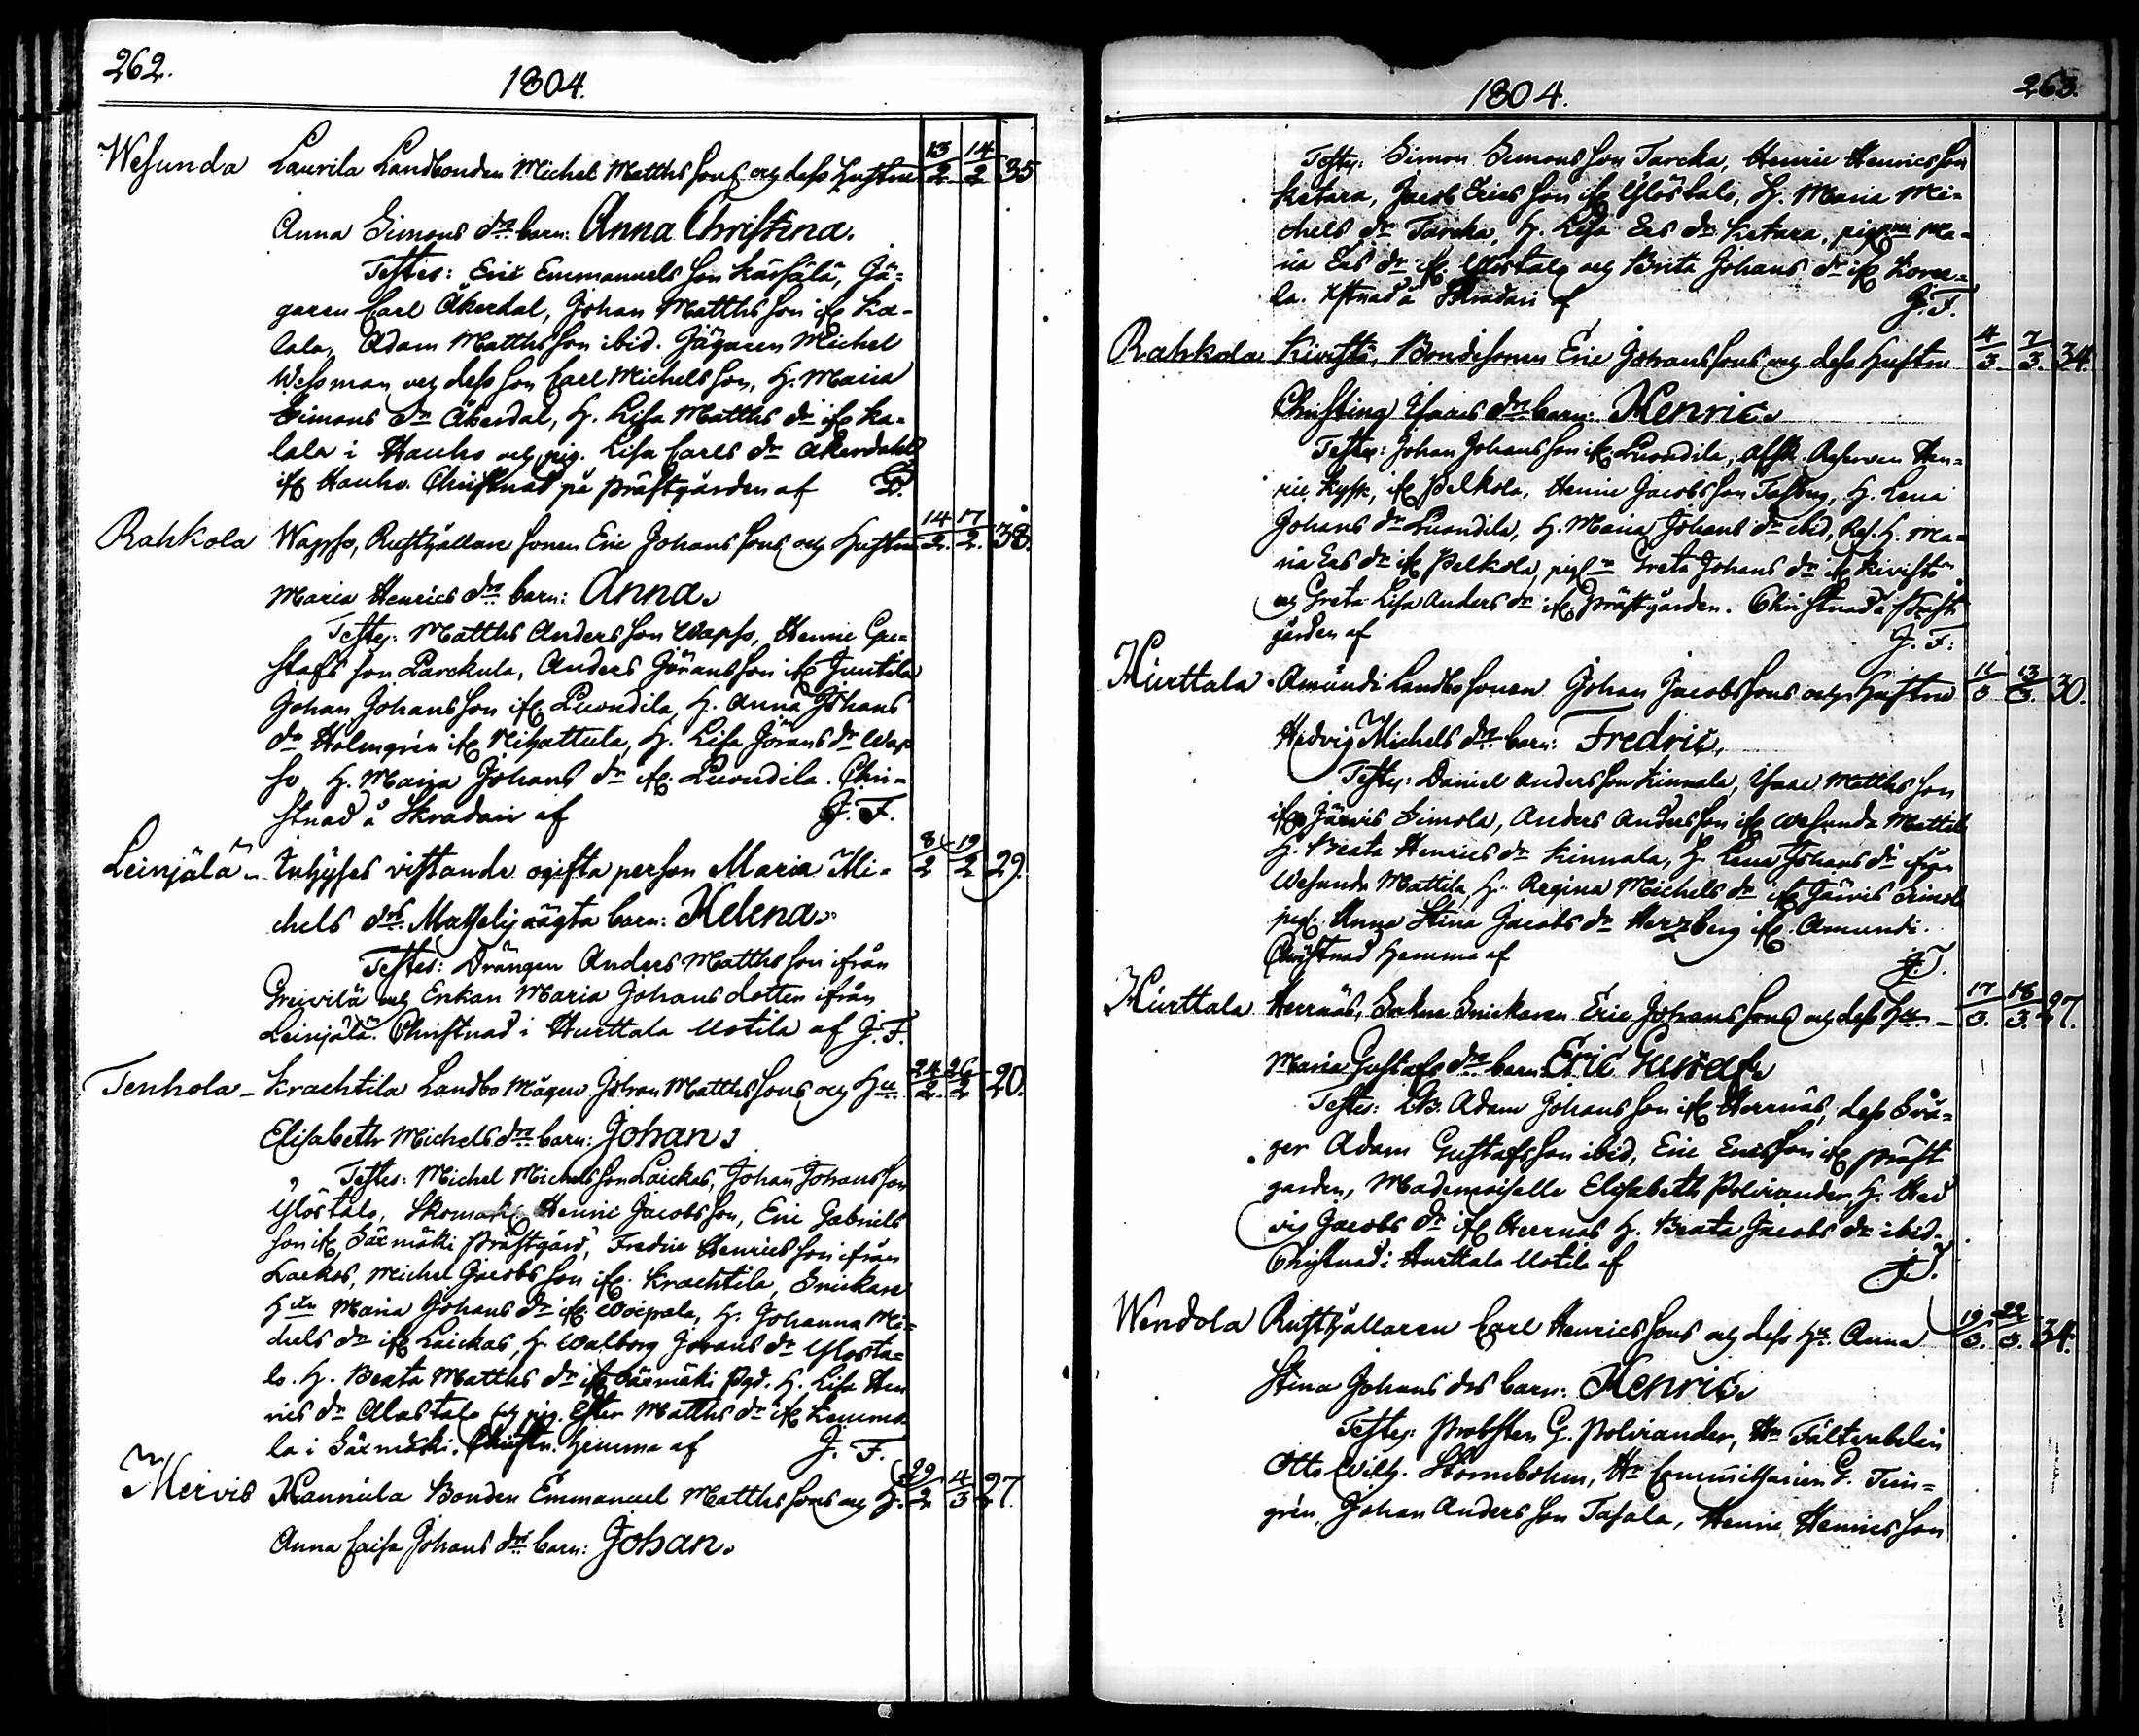 262.
1804.
13 14
Wesunda Laurila Landbonden Michel Matths sons och dess hustru 2 2 35
Anna Simons drs barn: Anna Christina.
Testes: Eric Emmanuels son Kärsälä, Jä-
garen Carl Åkerdal, Johan Matths son ifr. Ka-
lala, Adam Matths son ibid. Jägaren Michel
Wessman och dess son Carl Michels son, H. Maria
Simons dr Åkerdal, H. Lisa Matths dr ifr Ka-
lala i Hauho och pig. Lisa Carls dr Åkerdahl
ifr Hauho. Christnad på prästgården af
14 17
Rahkola Wapso, Rusthållare sonen Eric Johans sons och hustru 2. 2. 38.
Maria Henrics drs barn: Anna.
Testes: Matths Anders son Wapso, Henric Gu-
stafs son Parckula, Anders Jörans son ifr Juutila
Johan Johans son ifr. Luondila, H. Anna Johans
dr Holmgrén ifr Nihattula, H. Lisa Jörans dr Wap
so, H. Maria Johans dr ifr. Luondila. Chri-
stnad å Skradari af J. F.
8 19
Leinjälä Inhyses vistande ogifta person Maria Mi- 2 2 29.
chels drs barn: Helena.
Testes: Drängen Anders Matths son ifrån
och Enkan Maria Johans dotter ifrån
Leinjälä. Christnad i Hurttala Uotila af J. F.
24 26
Tenhola - Krachtila Landbo Mågen Johan Matths sons och Hu 2. 2 20.
Elisabeth Michels drs barn: Johan.
Testes: Michel Michels son Laickas, Johan Johans son
Ylöstalo, Henric Jacobs son, Eric Gabriels
son ifr. Särmäki prästgård, Fredric Henrics son ifrån
Michel Jacobs son ifr. Krachtila, Snickare
Maria Johans dr ifr. Woipala, H. Johanna Mi-
chels dr ifr Laickas, H. Walborg Jörans dr Ylösta-
lo. H. Beata Matths dr ifr Särmäki Pgd. H. Lisa Hen
rics dr Alastalo och pig. Ester Matths dr ifr
la i Särmäki. Christn. hemma af J. F.
29 4
Mervis Hannula Bonden Emmanuel Matths sons och H. 2 3 27.
Anna Caisa Johans drs barn: Johan.
1804.
263.
Testes: Simon Simons son Tarcka, Henric Henrics son
Ketara, Jacob Erics son ifr Ylöstalo, H. Maria Mi-
chels dr Tarcka, H. Lisa Ers dr Ketara, Ma-
ria Ers dr ifr. Ylöstalo och Brita Johans dr ifr
la. Xstnad å Skradari af J. F.
4 7
Rahkola Kivistö, Bondesonen Eric Johans sons och dess hustru 3. 3. 34.
Christina Isaacs drs barn: Henric.
Testes: Johan Johans son ifr. Luondila, Hen-
ric ifr Pelkola, Henric Jacobs son H. Lena
Johans dr Luondila, H. Maria Johans dr ibid, H. Ma-
ria Ers dr ifr Pelkola, Greta Johans dr ifr Kivistö
och Greta Lisa Anders dr ifr. prästgården. Christnad å prästs
gården af J. F.
11 13
Hurttala Amundi Landbo sonen Johan Jacobs sons och hustru 3 3. 30.
Hedvig Michels drs barn: Fredric.
Testes: Daniel Anders son Kinnala, Isaac Matths son
ifr Järvis Simola, Anders Anders son ifr Wesunda Mattila
H. Beata Henrics dr Kinnala, H. Lena Johans dr ifrån
Wesunda Mattila, H. Regina Michels dr ifr Järvis Simola
pig. Anna Stina Jacobs dr Herzberg ifr. Amundi.
Christnad hemma af J. F.
17 18
Hurttala Herrnäs, Sockne Snickaren Eric Johans sons och dess Hu 3. 3. 27.
Maria Gustafs drs barn Eric Gustaf.
Testes: Adam Johans son ifr Herrnäs, dess Svå-
ger Adam Gustafs son ibid, Eric Erics son ifr präst
garden, Mademoiselle Elisabeth Polviander, H. Hed
vig Jacobs dr ifr Herrnäs H. Beata Jacobs dr ibid.
Christnad i Hurttala Uotila af J. F.
19 22
Wendola Rusthållaren Carl Henrics sons och dess Hu. Anna 3. 3. 34.
Stina Johans drs barn: Henric.
Testes: Probsten G. Polviander, Hr
Otto Wilh. Hr G. Tun-
grén, Johan Anders son Tasala, Henric Henrics son